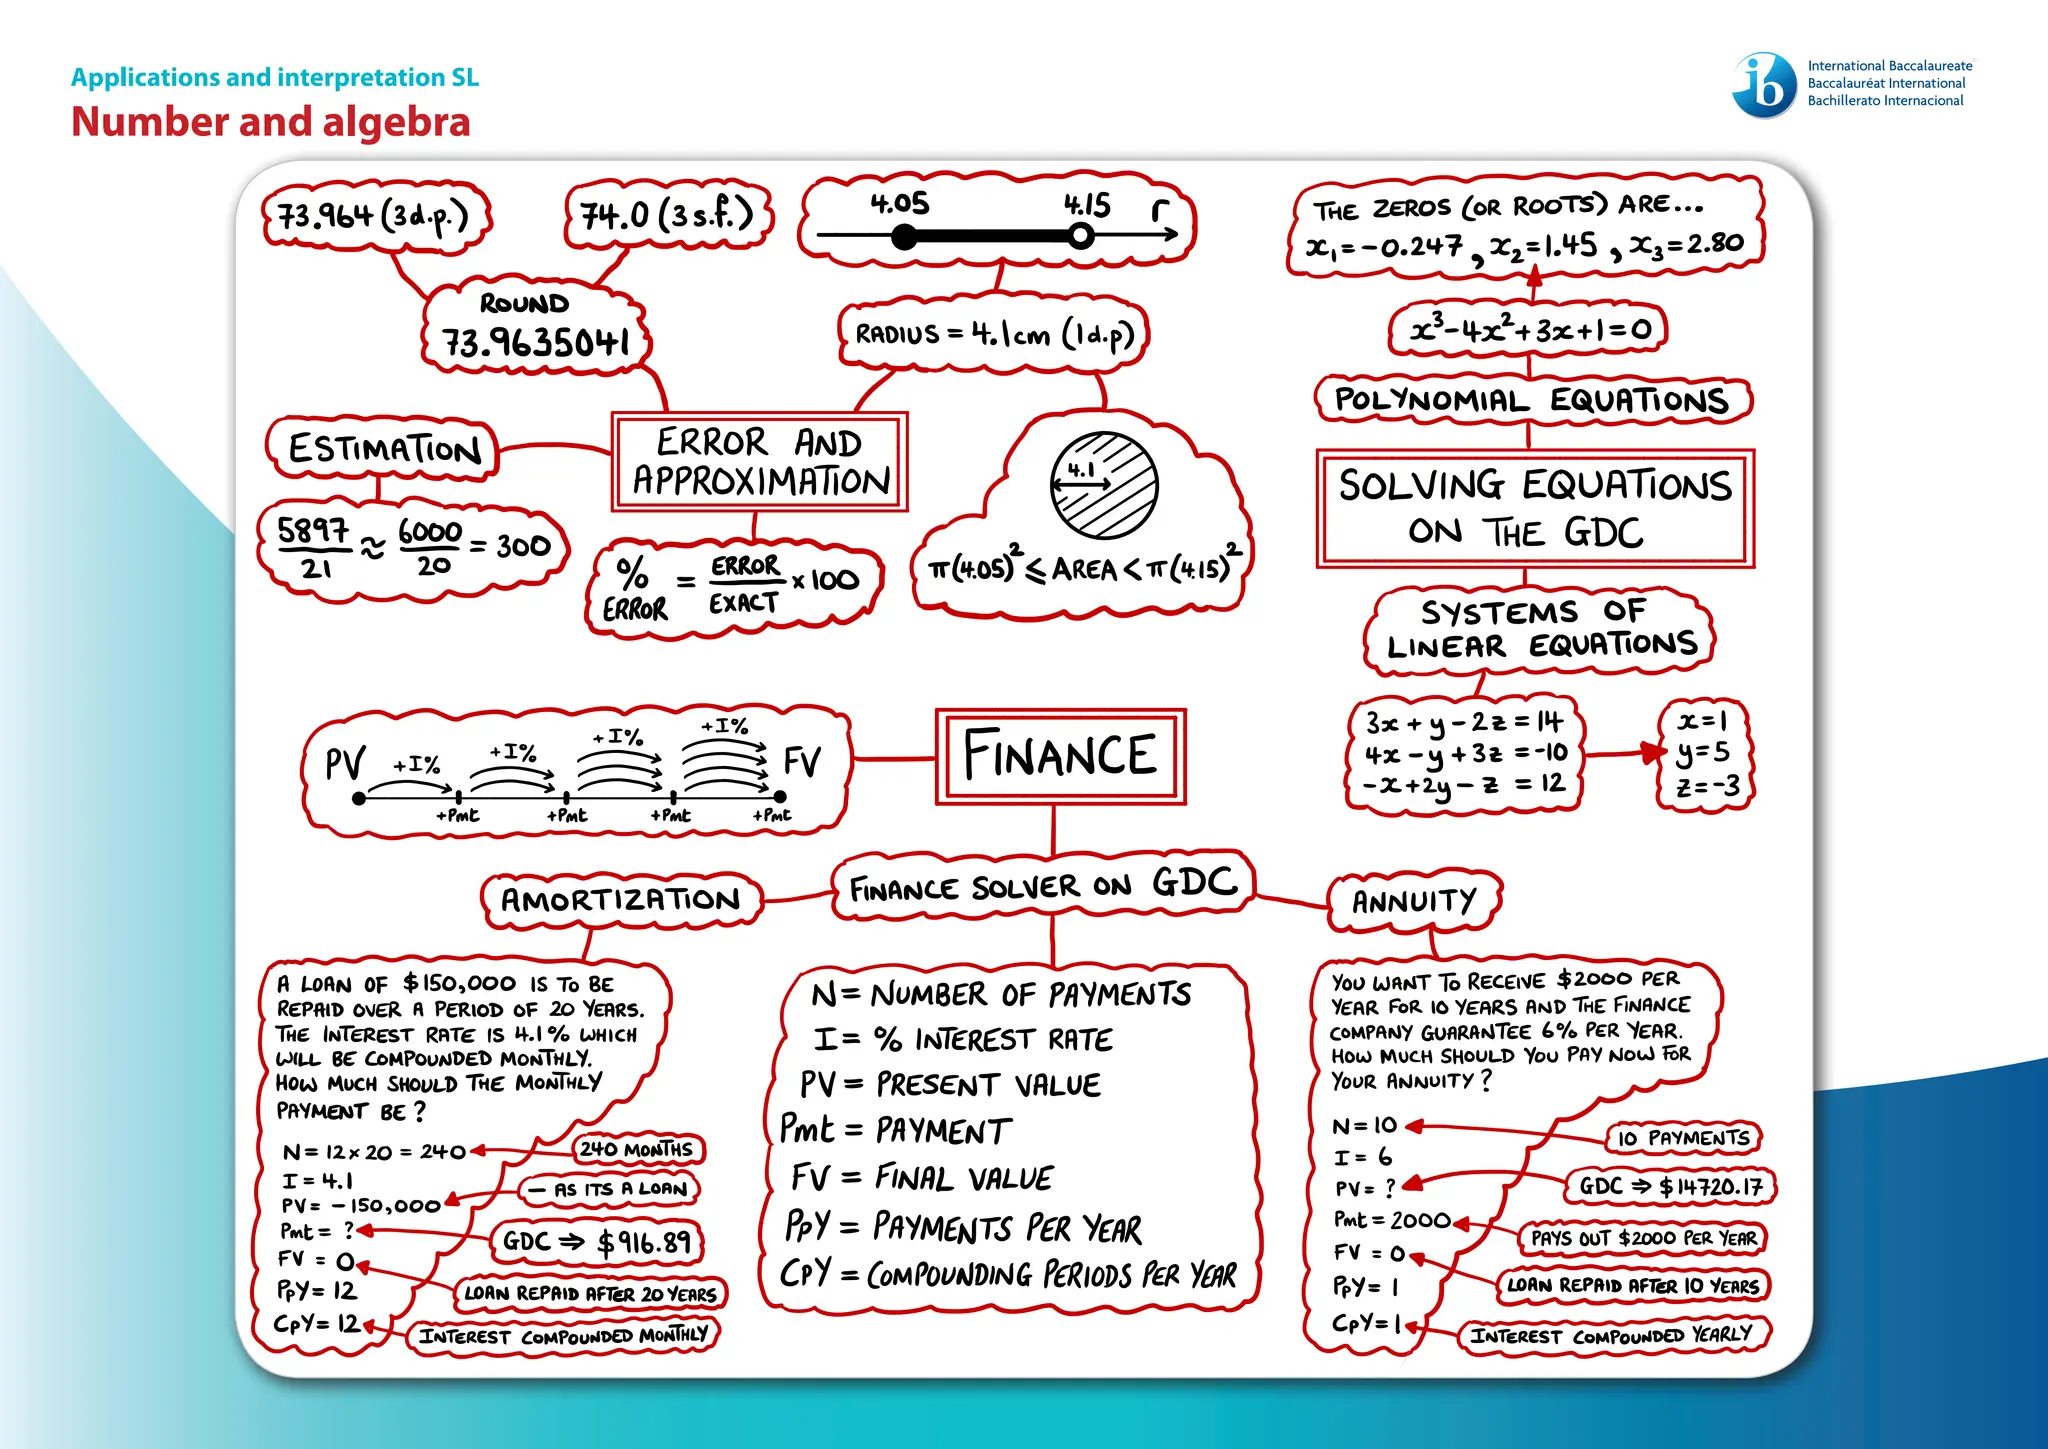 Applications and interpretation SL
Number and algebra
International Baccalaureate
Baccalauréat International
Bachillerato Internacional
73.964 (3d.p.)
74.0 (3 s.f.)
ROUND
73.9635041
4.05 4.15 r
RADIUS = 4.1cm (1d.p)
ESTIMATION
5897/21 ≈ 6000/20 = 300
ERROR AND
APPROXIMATION
% ERROR = ERROR/EXACT × 100
4.1
π(4.05)² ⩽ AREA < π(4.15)²
THE ZEROS (OR ROOTS) ARE...
x₁=-0.247, x₂=1.45, x₃=2.80
x³-4x²+3x+1=0
POLYNOMIAL EQUATIONS
SOLVING EQUATIONS
ON THE GDC
SYSTEMS OF
LINEAR EQUATIONS
3x + y - 2z = 14
4x - y + 3z = -10
-x + 2y - z = 12
x=1
y=5
z=-3
FINANCE
PV +I% +I% +I% +I% FV
+Pmt +Pmt +Pmt +Pmt
FINANCE SOLVER ON GDC
AMORTIZATION
A LOAN OF $150,000 IS TO BE
REPAID OVER A PERIOD OF 20 YEARS.
THE INTEREST RATE IS 4.1% WHICH
WILL BE COMPOUNDED MONTHLY.
HOW MUCH SHOULD THE MONTHLY
PAYMENT BE?
N = 12 × 20 = 240
240 MONTHS
I = 4.1
PV = -150,000
— AS ITS A LOAN
Pmt = ?
GDC ⇒ $916.89
FV = 0
LOAN REPAID AFTER 20 YEARS
PpY = 12
CpY = 12
INTEREST COMPOUNDED MONTHLY
N = NUMBER OF PAYMENTS
I = % INTEREST RATE
PV = PRESENT VALUE
Pmt = PAYMENT
FV = FINAL VALUE
PpY = PAYMENTS PER YEAR
CpY = COMPOUNDING PERIODS PER YEAR
ANNUITY
YOU WANT TO RECEIVE $2000 PER
YEAR FOR 10 YEARS AND THE FINANCE
COMPANY GUARANTEE 6% PER YEAR.
HOW MUCH SHOULD YOU PAY NOW FOR
YOUR ANNUITY?
N = 10
10 PAYMENTS
I = 6
PV = ?
GDC ⇒ $14720.17
Pmt = 2000
PAYS OUT $2000 PER YEAR
FV = 0
LOAN REPAID AFTER 10 YEARS
PpY = 1
CpY = 1
INTEREST COMPOUNDED YEARLY